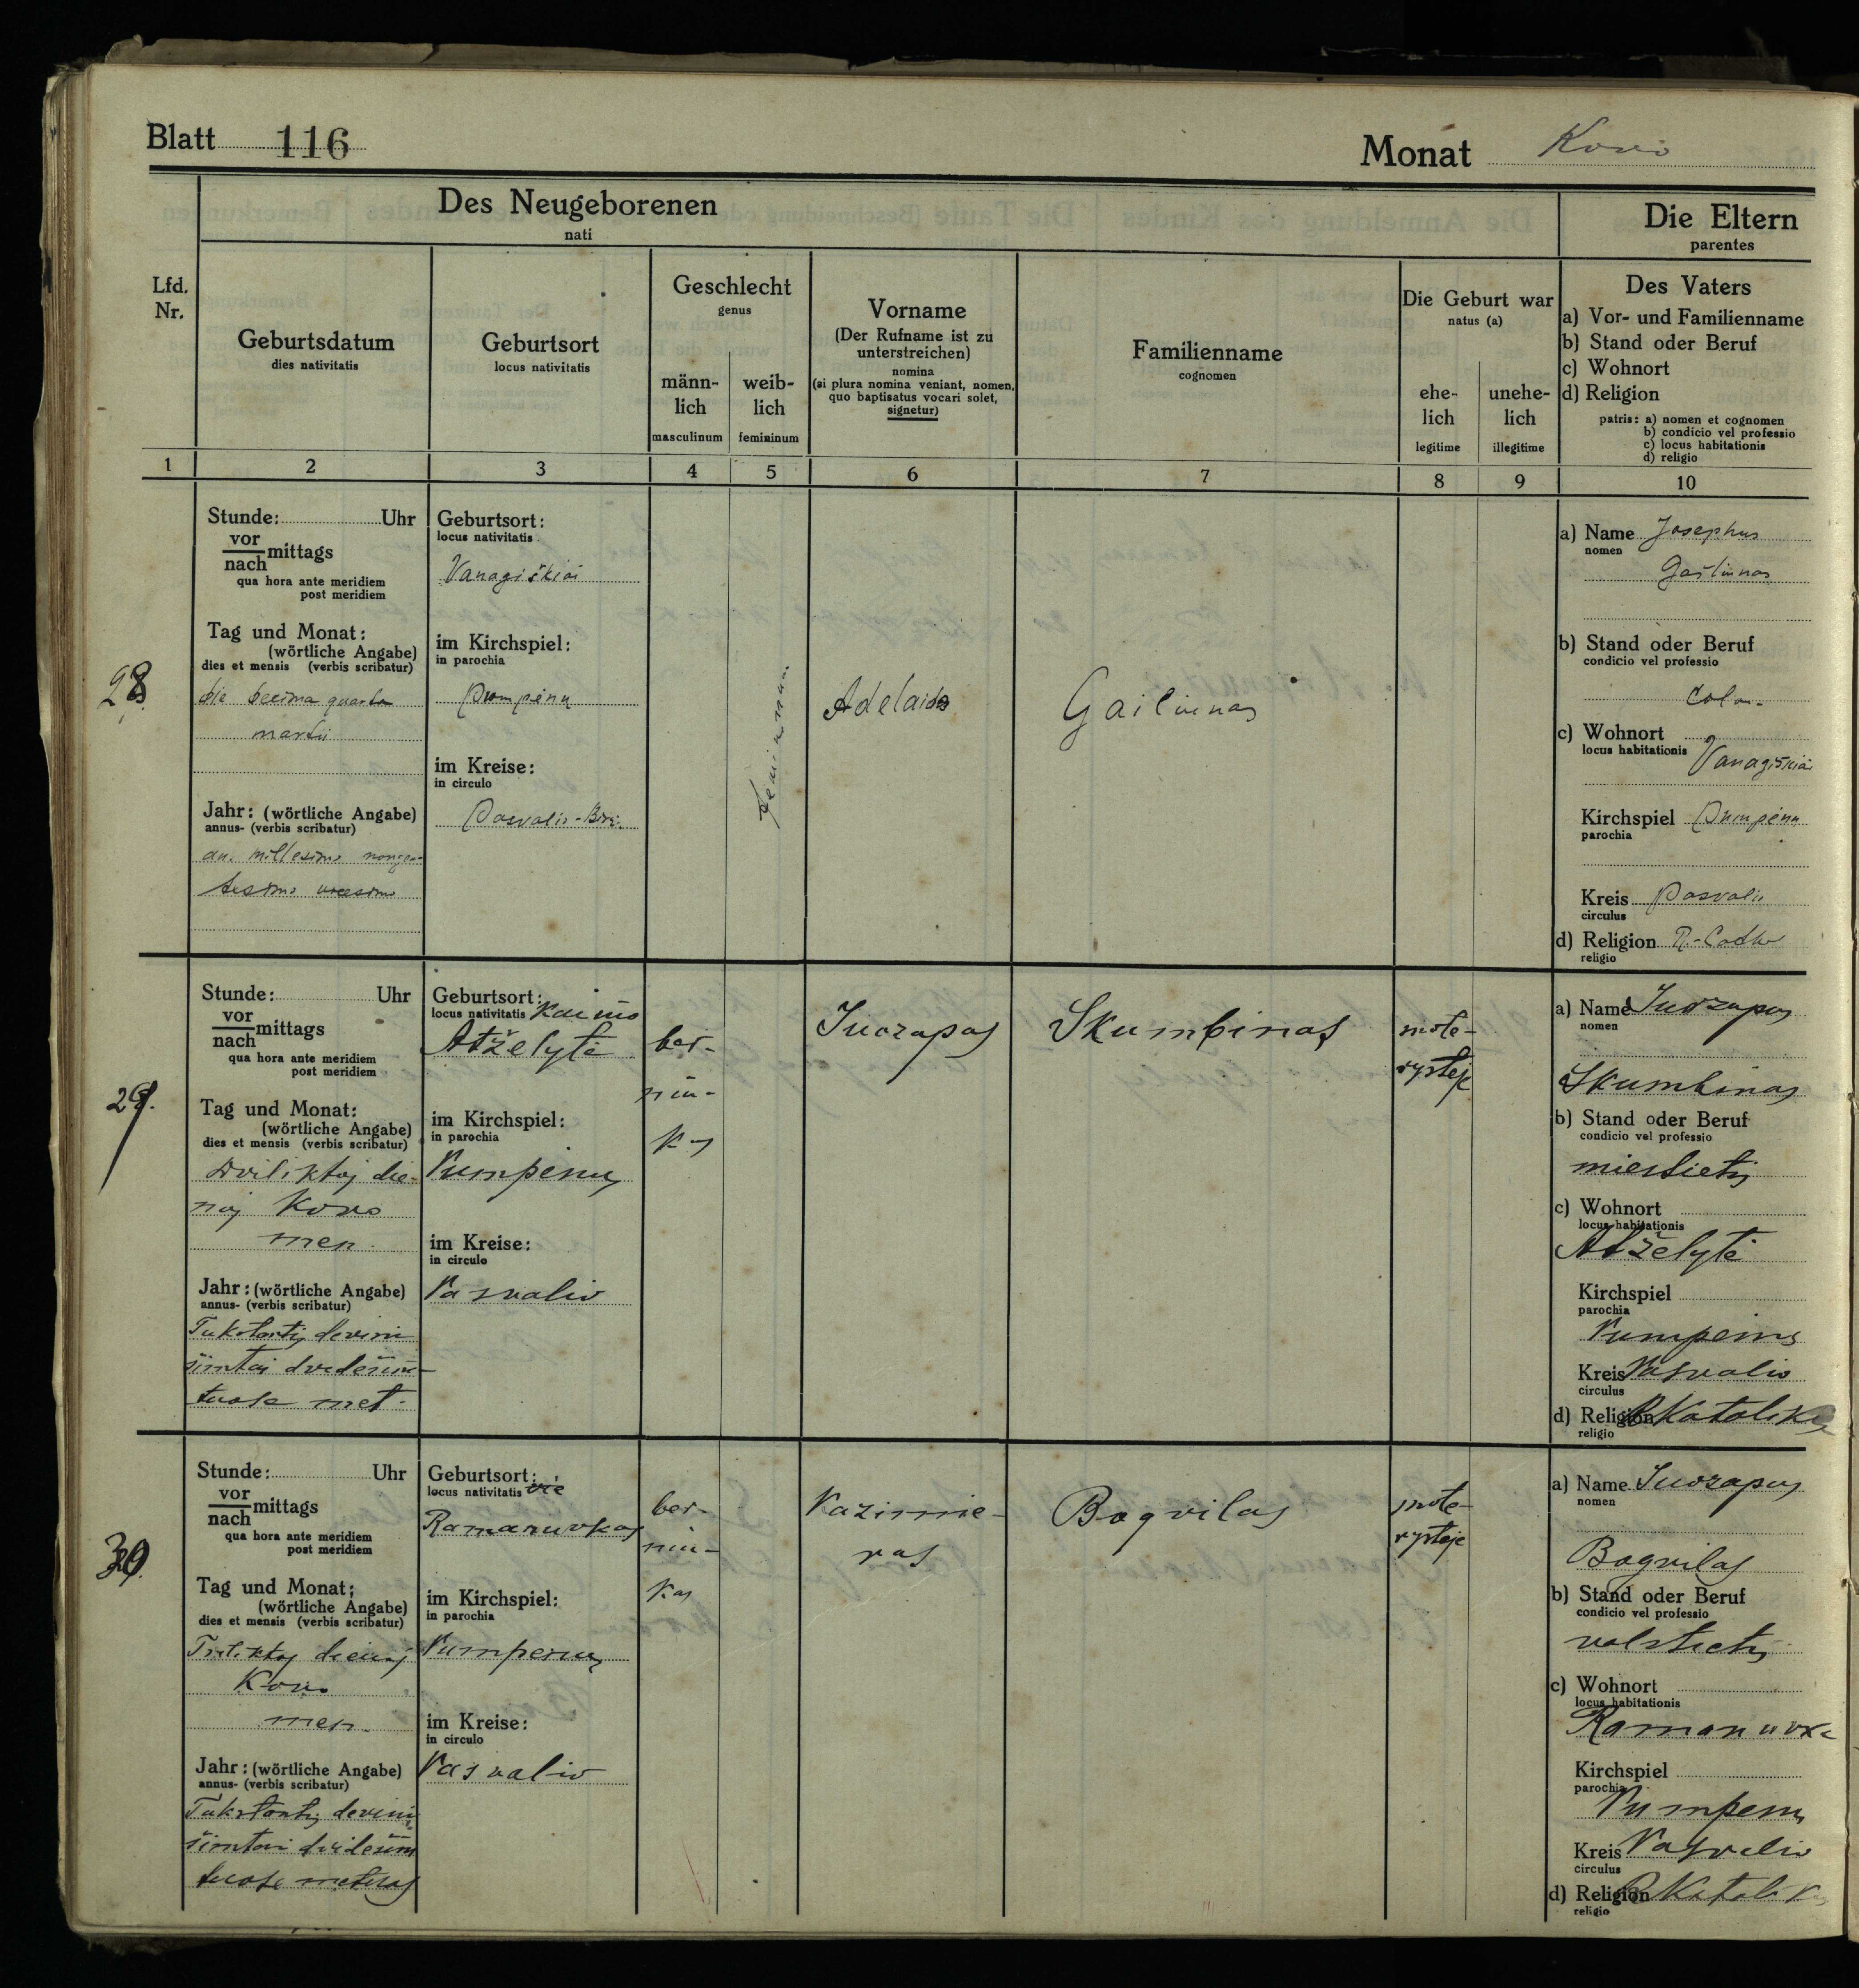 Blatt 116
Monat Kovo
Des Neugeborenen
nati
Die Eltern
parentes
Lfd.
Nr.
Geburtsdatum
dies nativitatis
Geburtsort
locus nativitatis
Geschlecht
genus
männ-
lich
masculinum
weib-
lich
femininum
Vorname
(Der Rufname ist zu
unterstreichen)
nomina
(si plura nomina veniant, nomen,
quo baptisatus vocari solet,
signetur)
Familienname
cognomen
Die Geburt war
natus (a)
ehe-
lich
legitime
unehe-
lich
illegitime
Des Vaters
a) Vor- und Familienname
b) Stand oder Beruf
c) Wohnort
d) Religion
patris: a) nomen et cognomen
b) condicio vel professio
c) locus habitationis
d) religio
1 2 3 4 5 6 7 8 9 10
28
Stunde: Uhr
vor
nach mittags
qua hora ante meridiem
post meridiem
Tag und Monat:
(wörtliche Angabe)
dies et mensis (verbis scribatur)
die decima quarta
martii
Jahr: (wörtliche Angabe)
annus- (verbis scribatur)
an. millesimo nongen-
tesimo vicesimo
Geburtsort:
locus nativitatis
Vanagiškiai
im Kirchspiel:
in parochia
Pumpėnų
im Kreise:
in circulo
Pasvalio-Birž.
femininum
Adelaida
Gailiunas
a) Name Josephus
nomen
Gailiunas
b) Stand oder Beruf
condicio vel professio
colon.
c) Wohnort
locus habitationis Vanagiškiai
Kirchspiel Pumpėnų
parochia
Kreis Pasvalio
circulus
d) Religion R.-Cath
religio
29.
Stunde: Uhr
vor
nach mittags
qua hora ante meridiem
post meridiem
Tag und Monat:
(wörtliche Angabe)
dies et mensis (verbis scribatur)
Dviliktoj die-
noj Kovo
men.
Jahr: (wörtliche Angabe)
annus- (verbis scribatur)
Tukstantis devini
šimtai dvidešim-
tuose met.
Geburtsort:
locus nativitatis Kaimo
Atželytė
im Kirchspiel:
in parochia
Pumpėnų
im Kreise:
in circulo
Pasvalio
ber-
niu-
kas
Juozapas
Skumbinas
mote-
rysteje
a) Name Juozapas
nomen
Skumbinas
b) Stand oder Beruf
condicio vel professio
miestietis
c) Wohnort
locus habitationis
Atželytė
Kirchspiel
parochia
Pumpėnų
Kreis Pasvalio
circulus
d) Religion R Katalikas
religio
30.
Stunde: Uhr
vor
nach mittags
qua hora ante meridiem
post meridiem
Tag und Monat:
(wörtliche Angabe)
dies et mensis (verbis scribatur)
Triliktoj dienoj
Kovo
men.
Jahr: (wörtliche Angabe)
annus- (verbis scribatur)
Tukstantis devini
šimtai dvidešim
tuose metuos
Geburtsort:
locus nativitatis
Ramanuvkos
im Kirchspiel:
in parochia
Pumpenų
im Kreise:
in circulo
Pasvalio
ber-
niu-
kas
Kazimie-
ras
Bogvilas
mote-
rysteje
a) Name Juozapas
nomen
Bogvilas
b) Stand oder Beruf
condicio vel professio
valstietis
c) Wohnort
locus habitationis
Kirchspiel
parochia
Pumpenų
Kreis Pasvalio
circulus
d) Religion R Katalikas
religio